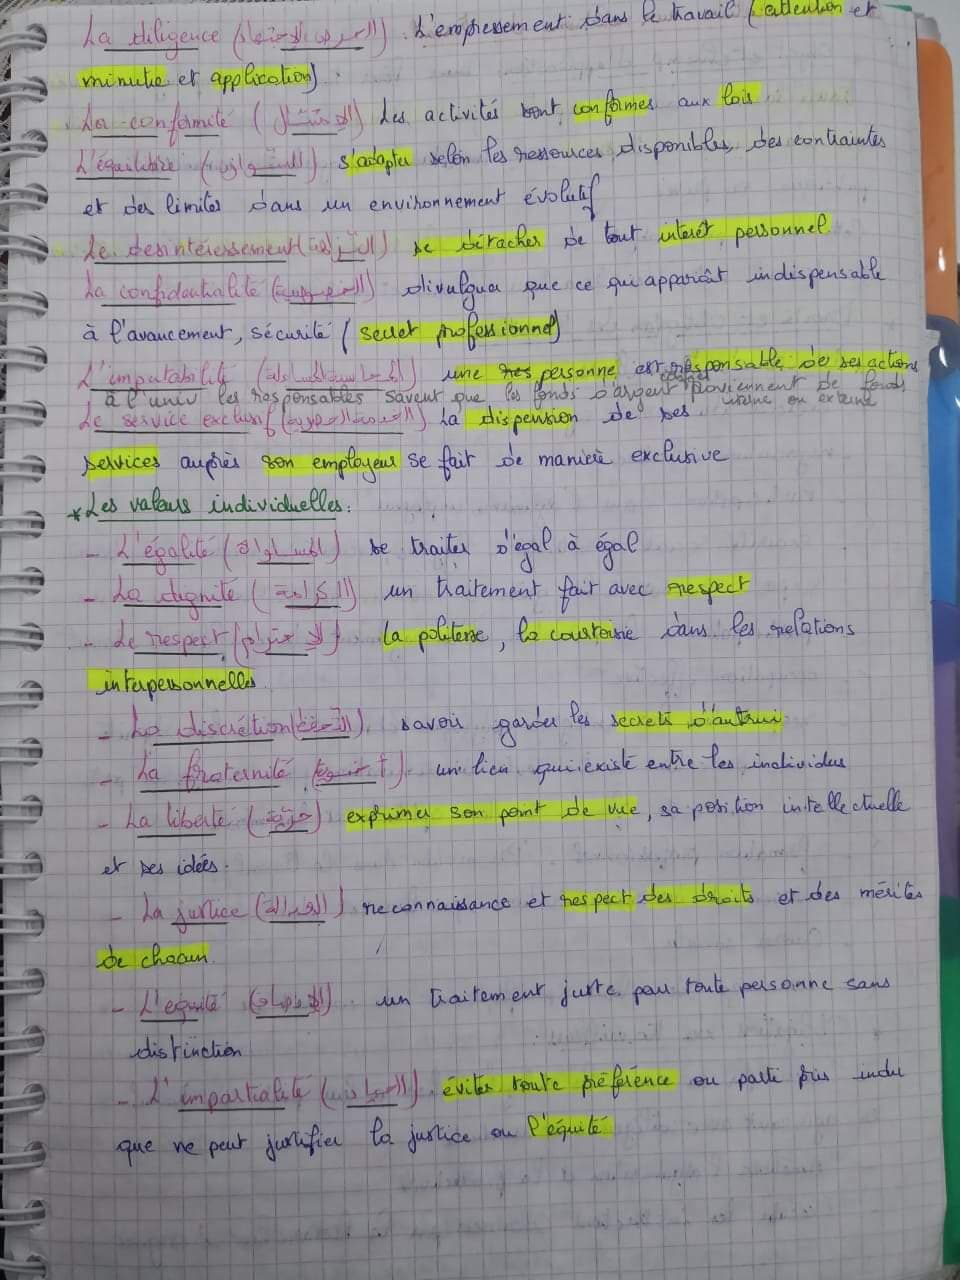 La diligence (الحرص، الاجتهاد) L'empressement dans le travail (attention et
minutie et application)
La conformité (الامتثال) Les activités sont conformes aux lois
L'équilibre (التوازن) s'adapter selon les ressources disponibles, des contraintes
et des limites dans un environnement évolutif
Le desintéressement (النزاهة) se détacher de tout intérêt personnel
La confidentialité (الخصوصية) divulguer que ce qui apparaît indispensable
à l'avancement, sécurité (secret professionnel)
L'imputabilité une personne est responsable de ses actions
à l'univ les responsables savent que les fonds d'argent proviennent de fonds
interne ou externe
Le service exclusif La dispension de ses
services auprès son employeur se fait de manière exclusive
* Les valeurs individuelles:
- L'égalité (المساواة) se traiter d'égal à égal
- La dignité (الكرامة) un traitement fait avec respect
- Le respect (الاحترام) la politesse, la courtoisie dans les relations
interpersonnelles
- La discrétion savoir garder les secrets d'autrui
- La fraternité un lien qui existe entre les individus
- La liberté (حرية) exprimer son point de vue, sa position intellectuelle
et ses idées.
- La justice (العدالة) reconnaissance et respect des droits et des mérites
de chacun
- L'équité (الإنصاف) un traitement juste pour toute personne sans
distinction
- L'impartialité (الحياد) éviter toute préférence ou parti pris indu
que ne peut justifier la justice ou l'équité